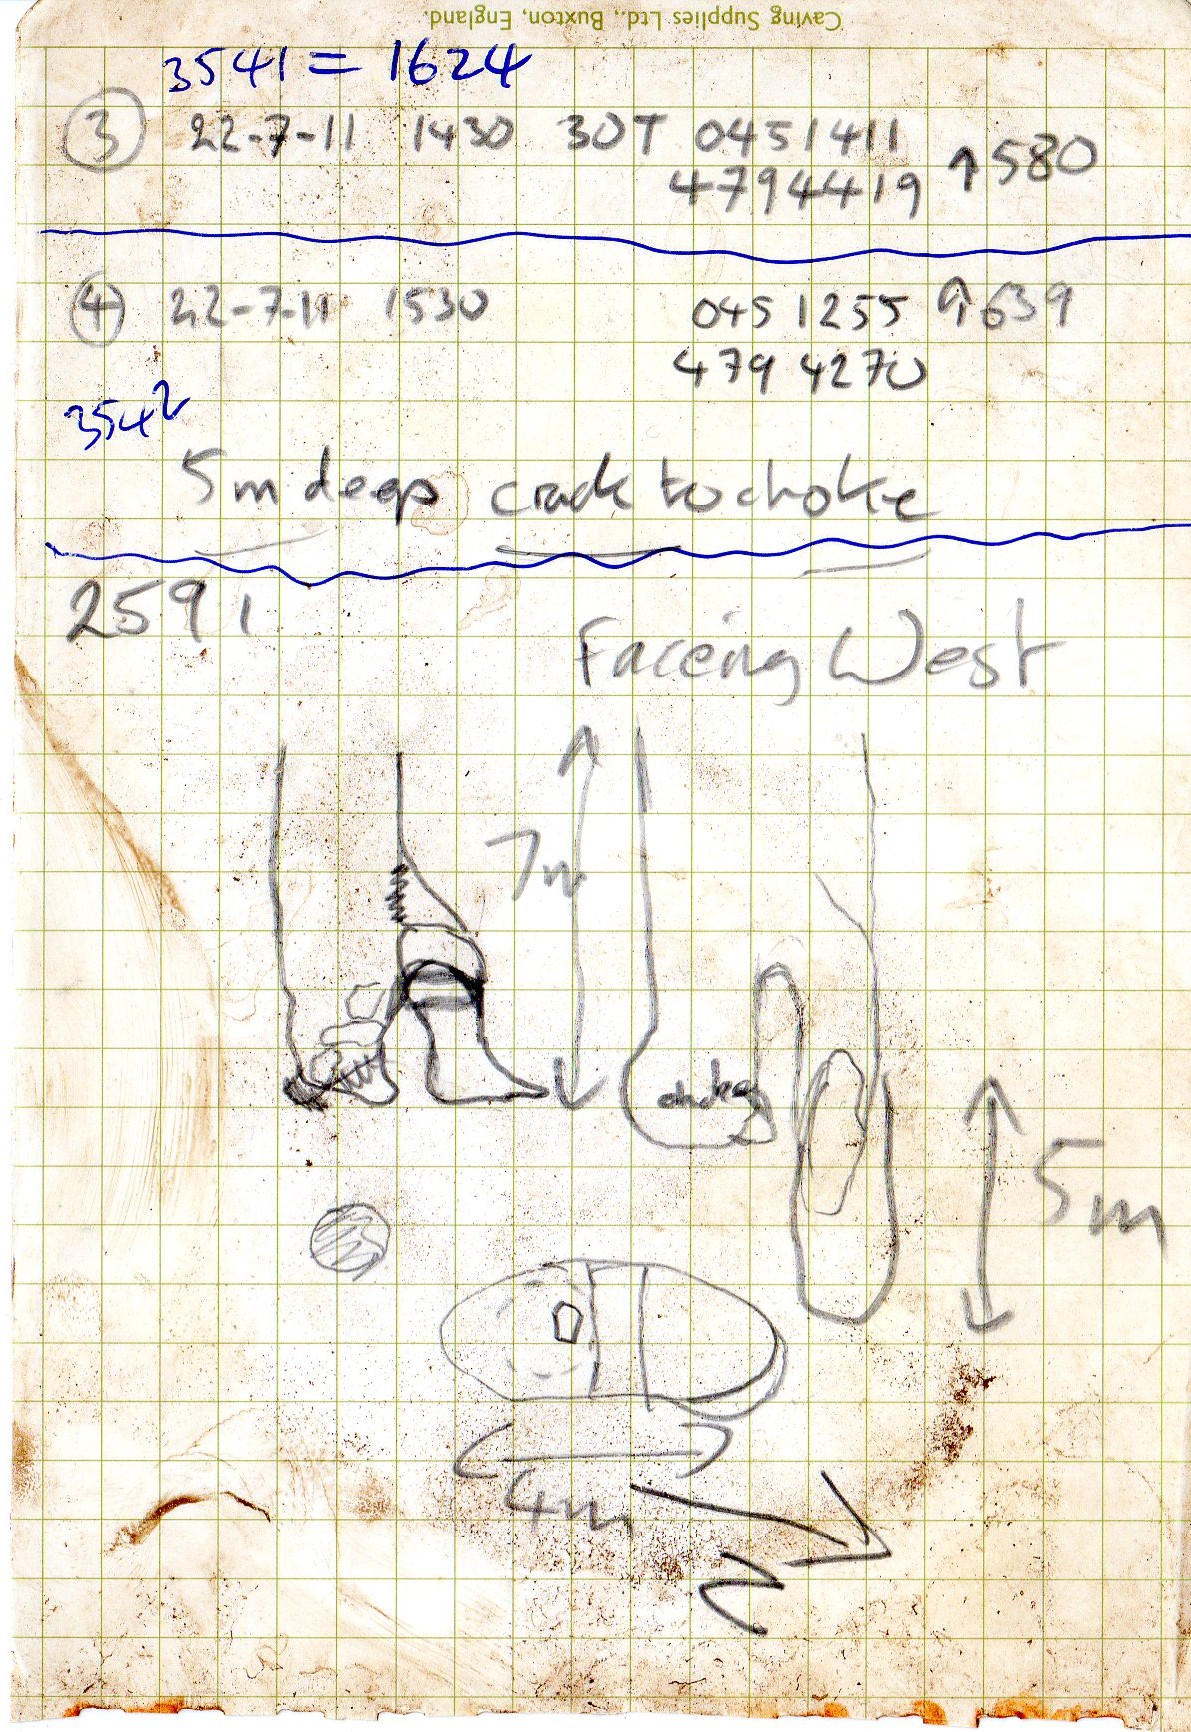 Caving Supplies Ltd., Buxton, England.
3541 = 1624
3 22-7-11 1430 30T 0451411 ↑580
4794419
4 22-7-11 1530 0451255 ↑639
479 4270
3542
5m deep crack to choke
2591
Facing West
7m
choke
5m
4m
N